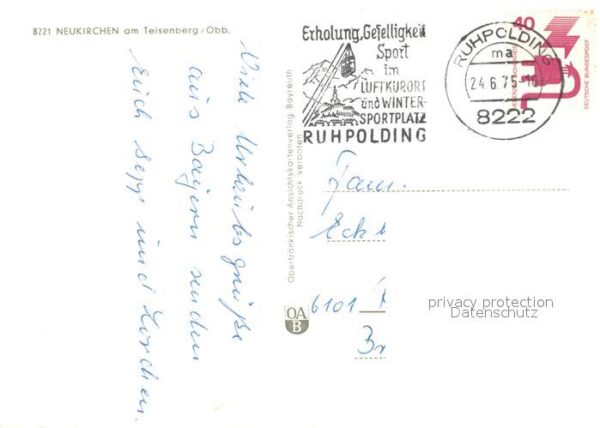 8221 NEUKIRCHEN am Teisenberg/Obb.
Viele Urlaubsgrüße
aus Bayern senden
Euch Sepp und Lorchen.
Oberfränkischer Ansichtskartenverlag Bayreuth
Nachdruck verboten
OA
B
Erholung, Geselligkeit
Sport
im
LUFTKURORT
und WINTER-
SPORTPLATZ
RUHPOLDING
RUHPOLDING
ma
24.6.75-16
8222
40
DEUTSCHE BUNDESPOST
Fam.
Eck
6101
Br
privacy protection
Datenschutz